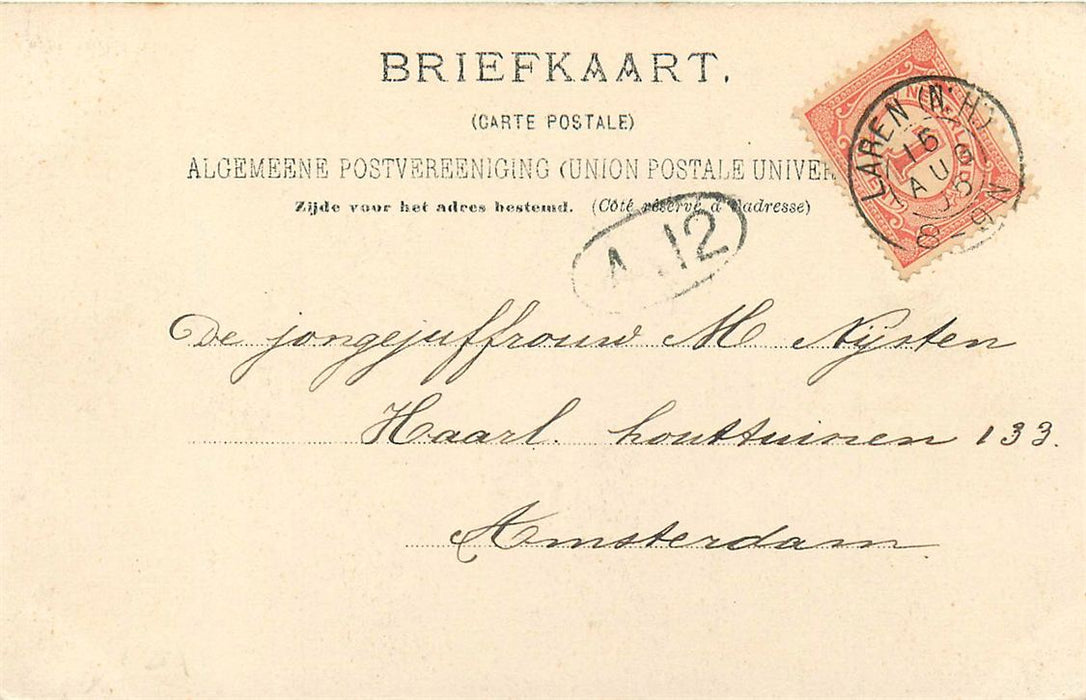 BRIEFKAART.
(CARTE POSTALE)
ALGEMEENE POSTVEREENIGING (UNION POSTALE UNIVER
Zijde voor het adres bestemd. (Côté réservé à l'adresse)
LAREN (N.H)
15
AUG
05
8-9N
A.12
De jongejuffrouw M Nijsten
Haarl. houttuinen 133.
Amsterdam